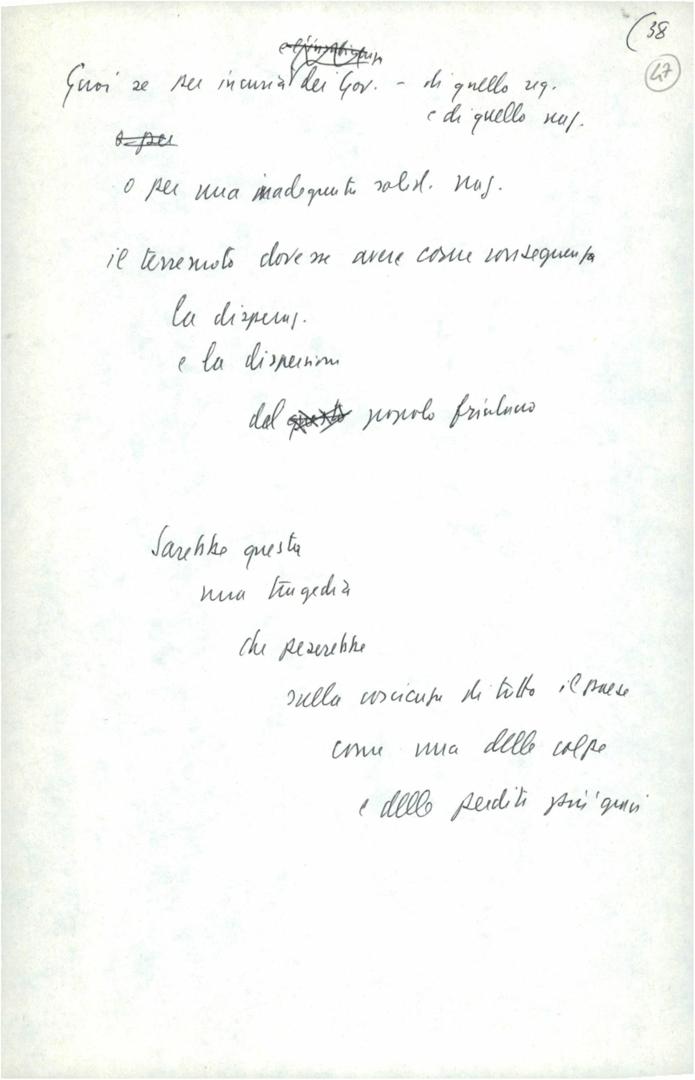 (38
47
Guai se per incuria dei Gov. - di quello reg.
e di quello naz.
o per
o per una inadeguata solid. naz.
il terremoto dovesse avere come conseguenza
la disperaz.
e la dispersione
del popolo friulano
Sarebbe questa
una tragedia
che peserebbe
sulla coscienza di tutto il paese
come una delle colpe
e delle perdite più gravi